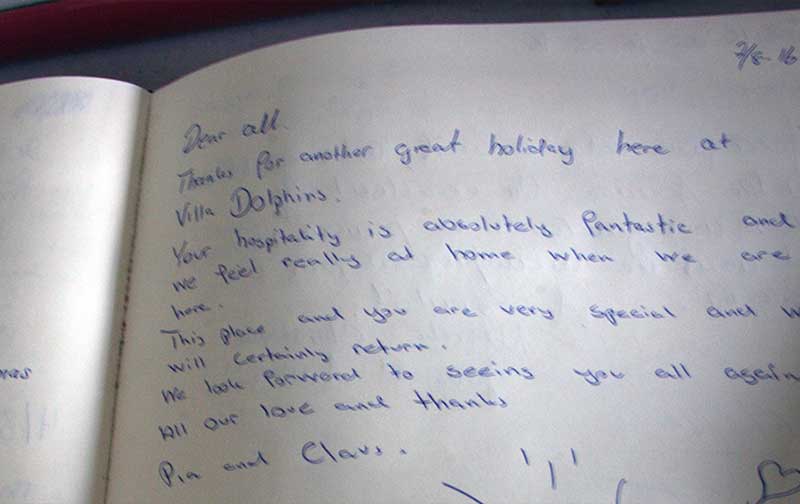 7/8-16
Dear all.
Thanks for another great holiday here at
Villa Dolphins!
Your hospitality is absolutely fantastic and
we feel really at home when we are
here.
This place and you are very special and w
will certainly return.
We look forward to seeing you all again
All our love and thanks
Pia and Claus.
mas